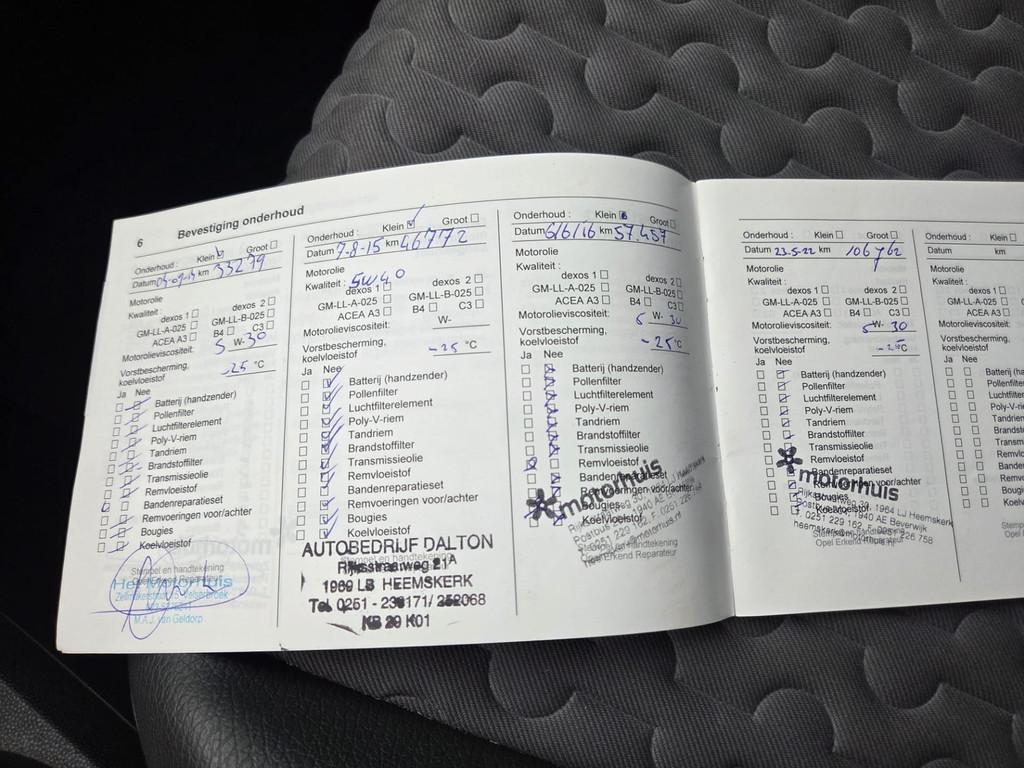 6 Bevestiging onderhoud
Onderhoud : Klein Groot
km 33279
Motorolie
Kwaliteit :
dexos 1 dexos 2
GM-LL-A-025 GM-LL-B-025
ACEA A3 B4 C3
Motorolieviscositeit: 5 W- 30
Vorstbescherming,
koelvloeistof -25 °C
Ja Nee
Batterij (handzender)
Pollenfilter
Luchtfilterelement
Poly-V-riem
Tandriem
Brandstoffilter
Transmissieolie
Remvloeistof
Bandenreparatieset
Remvoeringen voor/achter
Bougies
Koelvloeistof
Stempel en handtekening
Opel Erkend Reparateur
Het Motorhuis
M.A.J. van Geldorp
Onderhoud : Klein Groot
Datum 7-8-15 km 46772
Motorolie
Kwaliteit : 5W40
dexos 1 dexos 2
GM-LL-A-025 GM-LL-B-025
ACEA A3 B4 C3
Motorolieviscositeit: W-
Vorstbescherming,
koelvloeistof -25 °C
Ja Nee
Batterij (handzender)
Pollenfilter
Luchtfilterelement
Poly-V-riem
Tandriem
Brandstoffilter
Transmissieolie
Remvloeistof
Bandenreparatieset
Remvoeringen voor/achter
Bougies
Koelvloeistof
AUTOBEDRIJF DALTON
Rijksstraatweg 21A
1969 LB HEEMSKERK
Tel. 0251 -
KB 29 K01
Onderhoud : Klein Groot
Datum 6/6/16 km 57.457
Motorolie
Kwaliteit :
dexos 1 dexos 2
GM-LL-A-025 GM-LL-B-025
ACEA A3 B4 C3
Motorolieviscositeit: 5 W- 30
Vorstbescherming,
koelvloeistof -25 °C
Ja Nee
Batterij (handzender)
Pollenfilter
Luchtfilterelement
Poly-V-riem
Tandriem
Brandstoffilter
Transmissieolie
Remvloeistof
Bougies
Koelvloeistof
motorhuis
Stempel en handtekening
Opel Erkend Reparateur
Onderhoud : Klein Groot
Datum 23-5-22 km 106762
Motorolie
Kwaliteit :
dexos 1 dexos 2
GM-LL-A-025 GM-LL-B-025
ACEA A3 B4 C3
Motorolieviscositeit: 5 W- 30
Vorstbescherming,
koelvloeistof °C
Ja Nee
Batterij (handzender)
Pollenfilter
Luchtfilterelement
Poly-V-riem
Tandriem
Brandstoffilter
Transmissieolie
Remvloeistof
Bandenreparatieset
Bougies
Koelvloeistof
motorhuis
1964 LJ Heemskerk
1940 AE Beverwijk
Opel Erkend Reparateur
Onderhoud : Klein
Datum km
Motorolie
Kwaliteit :
dexos 1
GM-LL-A-025
ACEA A3
Motorolieviscositeit:
Vorstbescherming,
koelvloeistof
Ja Nee